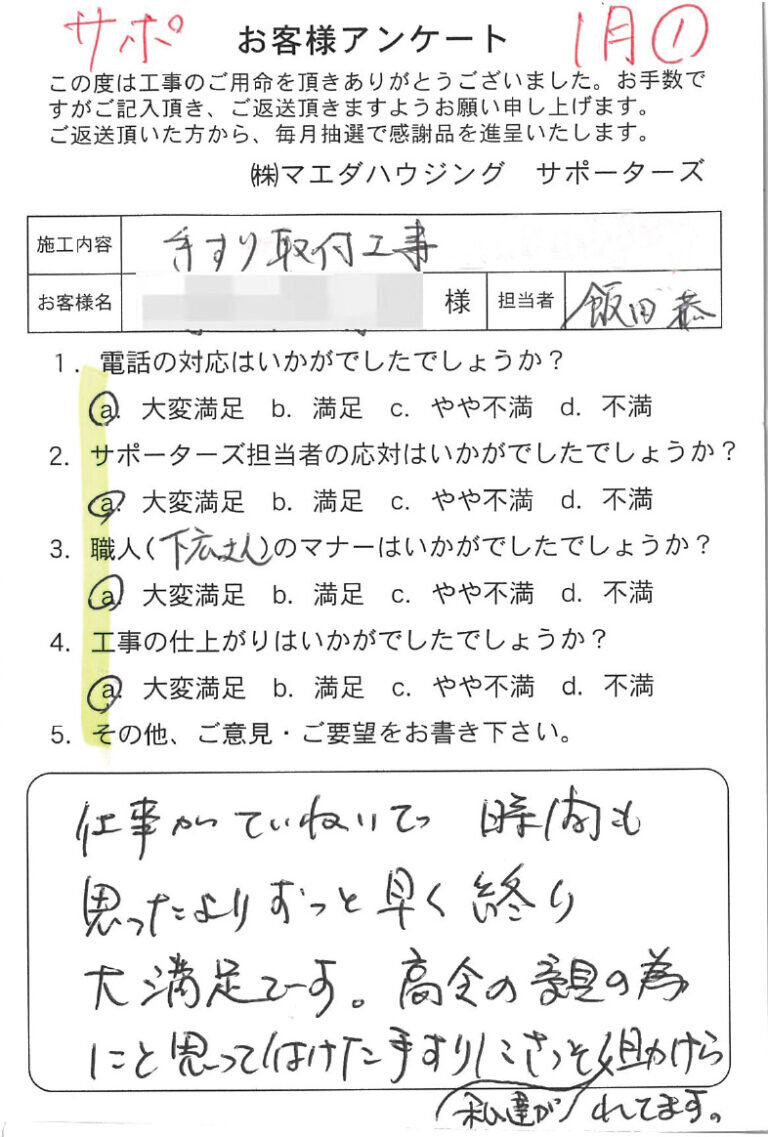 サポ お客様アンケート 1月①
この度は工事のご用命を頂きありがとうございました。お手数で
すがご記入頂き、ご返送頂きますようお願い申し上げます。
ご返送頂いた方から、毎月抽選で感謝品を進呈いたします。
㈱マエダハウジング サポーターズ
施工内容 手すり取付工事
お客様名 様 担当者 飯田 恭
1. 電話の対応はいかがでしたでしょうか？
a. 大変満足 b. 満足 c. やや不満 d. 不満
2. サポーターズ担当者の応対はいかがでしたでしょうか？
a. 大変満足 b. 満足 c. やや不満 d. 不満
3. 職人(下広さん)のマナーはいかがでしたでしょうか？
a. 大変満足 b. 満足 c. やや不満 d. 不満
4. 工事の仕上がりはいかがでしたでしょうか？
a. 大変満足 b. 満足 c. やや不満 d. 不満
5. その他、ご意見・ご要望をお書き下さい。
仕事がていねいで 時間も
思ったよりずっと早く終り
大満足です。高令の親の為
にと思って付けた手すりにさっそく助けら
私達が れてます。